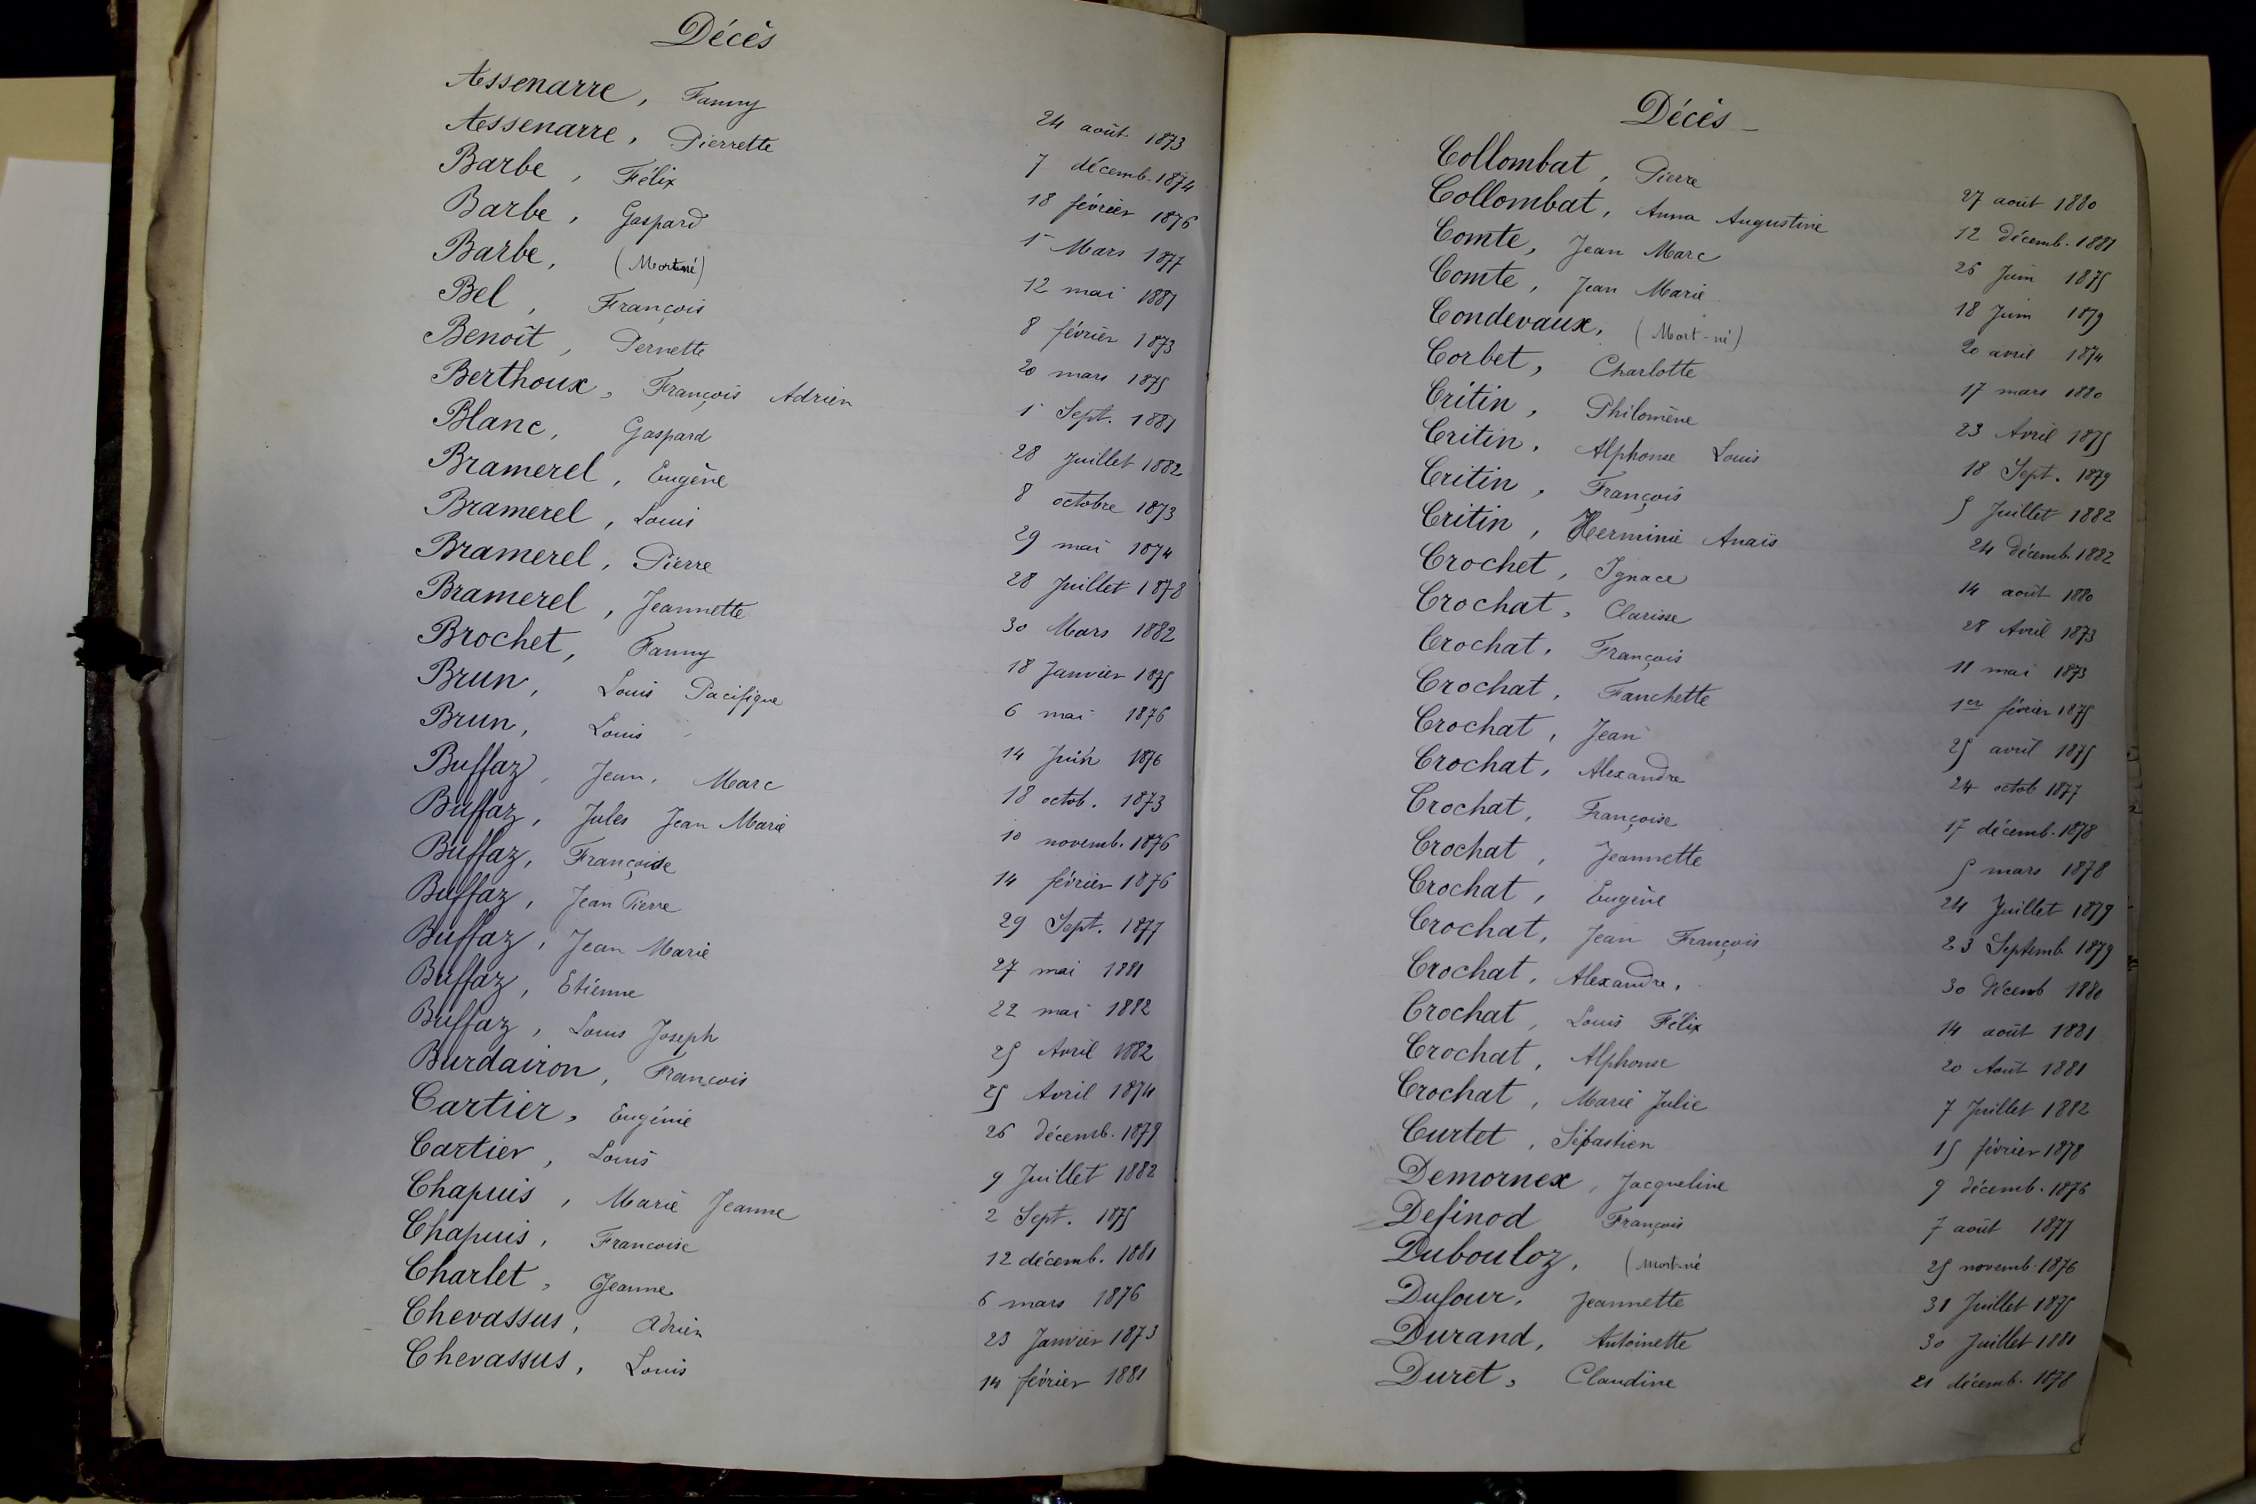 Décès
Assenarre, Fanny 24 août 1873
Assenarre, Pierrette 7 décemb. 1874
Barbe, Félix 18 février 1876
Barbe, Gaspard 1er Mars 1877
Barbe, (Mort-né) 12 mai 1881
Bel, François 8 février 1873
Benoît, Pernette 20 mars 1875
Berthoux, François Adrien 1er Sept. 1881
Blanc, Gaspard 28 Juillet 1882
Bramerel, Eugène 8 octobre 1873
Bramerel, Louis 29 mai 1874
Bramerel, Pierre 28 Juillet 1878
Bramerel, Jeannette 30 Mars 1882
Brochet, Fanny 18 Janvier 1875
Brun, Louis Pacifique 6 mai 1876
Brun, Louis 14 Juin 1876
Buffaz, Jean, Marc 18 octob. 1873
Buffaz, Jules Jean Marie 10 novemb. 1876
Buffaz, Françoise 14 février 1876
Buffaz, Jean Pierre 29 Sept. 1877
Buffaz, Jean Marie 27 mai 1881
Buffaz, Etienne 22 mai 1882
Buffaz, Louis Joseph 25 Avril 1882
Burdairon, François 25 Avril 1874
Cartier, Eugénie 26 décemb. 1879
Cartier, Louis 9 Juillet 1882
Chapuis, Marie Jeanne 2 Sept. 1875
Chapuis, Francoise 12 décemb. 1881
Charlet, Jeanne 6 mars 1876
Chevassus, Adrien 23 Janvier 1873
Chevassus, Louis 14 février 1881
Décès –
Collombat, Pierre 27 août 1880
Collombat, Anna Augustine 12 décemb. 1881
Comte, Jean Marc 26 Juin 1875
Comte, Jean Marie 18 Juin 1879
Condevaux, (Mort-né) 20 avril 1874
Corbet, Charlotte 17 mars 1880
Critin, Philomène 23 Avril 1875
Critin, Alphonse Louis 18 Sept. 1879
Critin, François 5 Juillet 1882
Critin, Herminie Anaïs 24 décemb. 1882
Crochet, Ignace 14 août 1880
Crochat, Clarisse 28 Avril 1873
Crochat, François 11 mai 1873
Crochat, Fanchette 1er février 1875
Crochat, Jean 25 avril 1875
Crochat, Alexandre 24 octob 1877
Crochat, Françoise 17 décemb. 1878
Crochat, Jeannette 5 mars 1878
Crochat, Eugène 24 Juillet 1879
Crochat, Jean François 23 Septemb 1879
Crochat, Alexandre, 30 Décemb 1880
Crochat, Louis Félix 14 août 1881
Crochat, Alphonse 20 Août 1881
Crochat, Marie Julie 7 Juillet 1882
Curtet, Sébastien 15 février 1878
Demornex, Jacqueline 9 décemb. 1876
Definod François 7 août 1875
Dubouloz, (mort-né 25 novemb. 1876
Dufour, Jeannette 31 Juillet 1875
Durand, Antoinette 30 Juillet 1881
Duret, Claudine 21 décemb. 1878